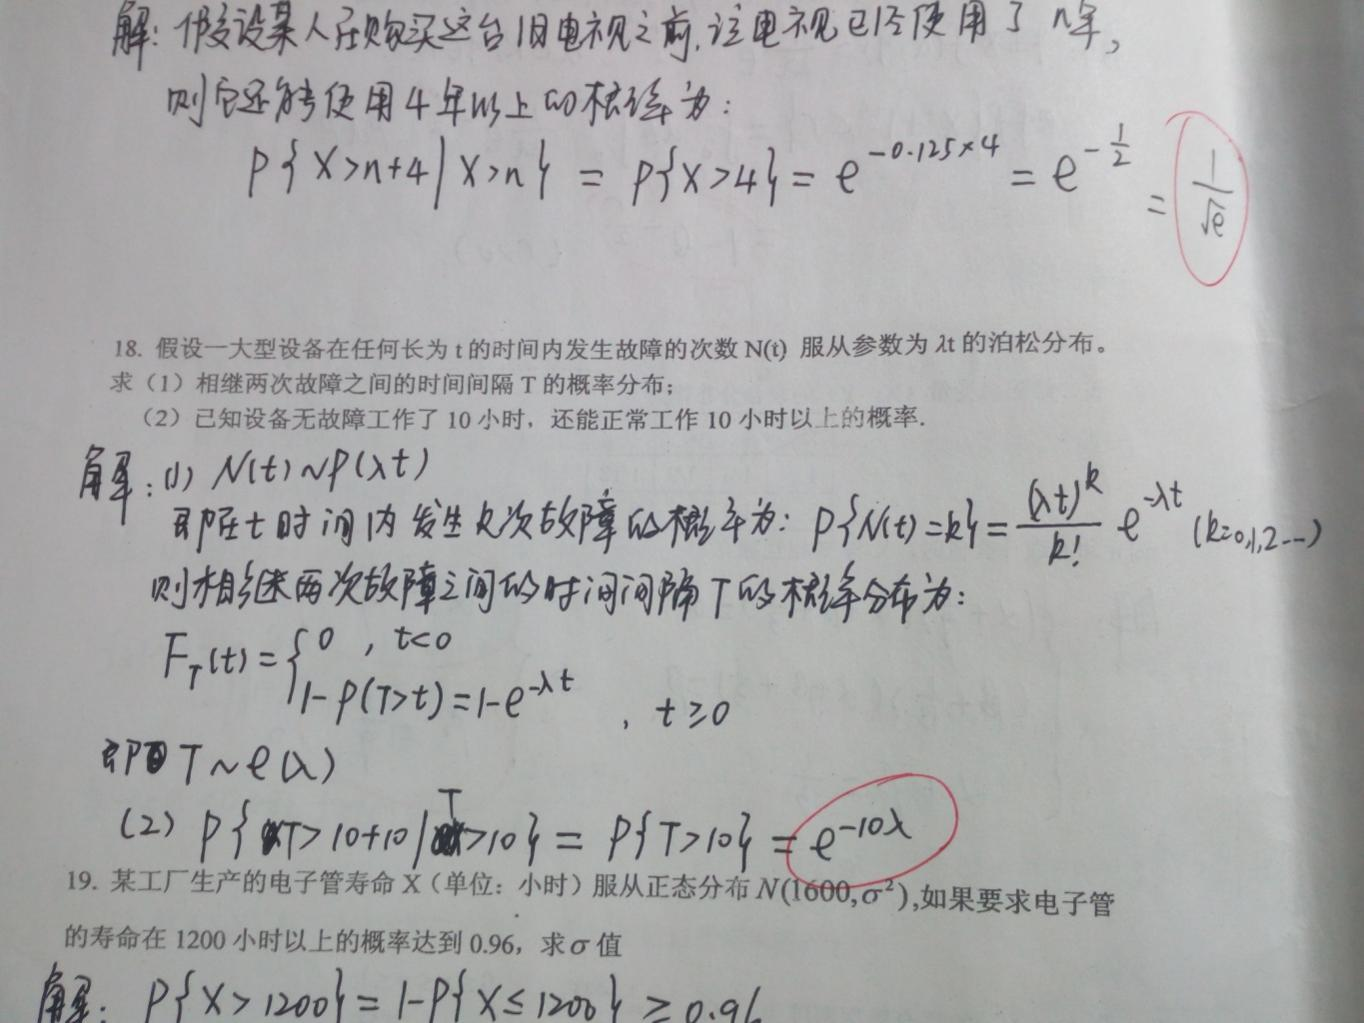 解：假设某人在购买这台旧电视之前，该电视已经使用了n年，
则它还能够使用4年以上的概率为：
P{X>n+4|X>n} = P{X>4} = e^{-0.125×4} = e^{-1/2} = 1/√e
18. 假设一大型设备在任何长为 t 的时间内发生故障的次数 N(t) 服从参数为 λt 的泊松分布。
求（1）相继两次故障之间的时间间隔 T 的概率分布；
（2）已知设备无故障工作了 10 小时，还能正常工作 10 小时以上的概率.
解：(1) N(t)~P(λt)
即在t时间内发生k次故障的概率为：P{N(t)=k}= (λt)^k/k! e^{-λt} (k=0,1,2--)
则相继两次故障之间的时间间隔T的概率分布为：
F_T(t)={0 , t<0
1-P(T>t)=1-e^{-λt} , t≥0
即 T~e(λ)
(2) P{T>10+10|T>10} = P{T>10} = e^{-10λ}
19. 某工厂生产的电子管寿命 X（单位：小时）服从正态分布 N(1600,σ²),如果要求电子管
的寿命在 1200 小时以上的概率达到 0.96，求 σ 值
解：P{X>1200}=1-P{X≤1200}≥0.96